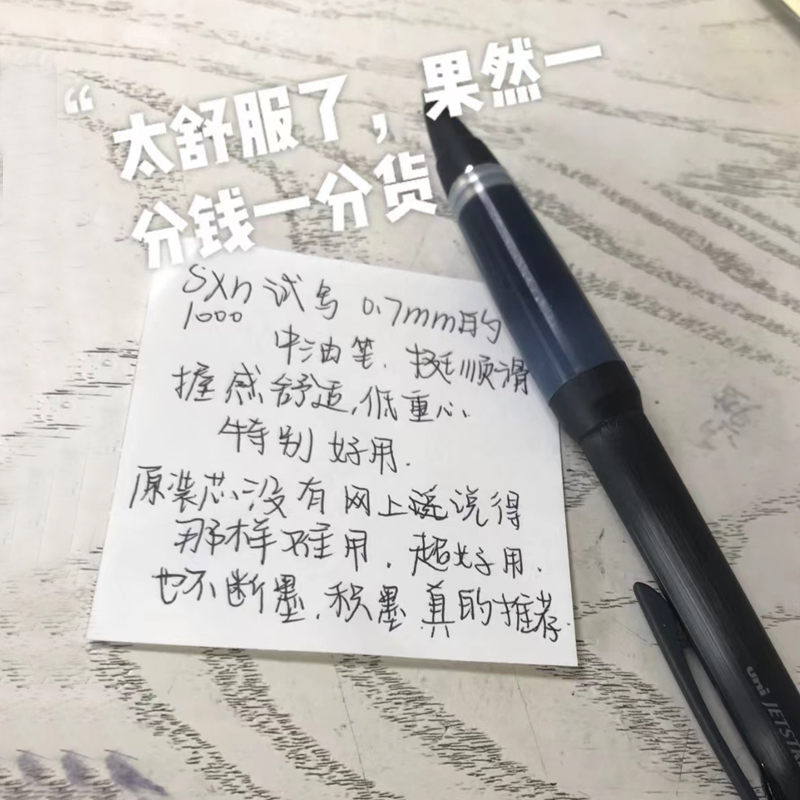 “太舒服了，果然一
分钱一分货
SXn试写 0.7mm的
1000
中油笔.挺顺滑
握感舒适,低重心、
特别好用.
原装芯没有网上说说得
那样难用.超好用.
也不断墨.积墨真的推荐.
uni JETSTR